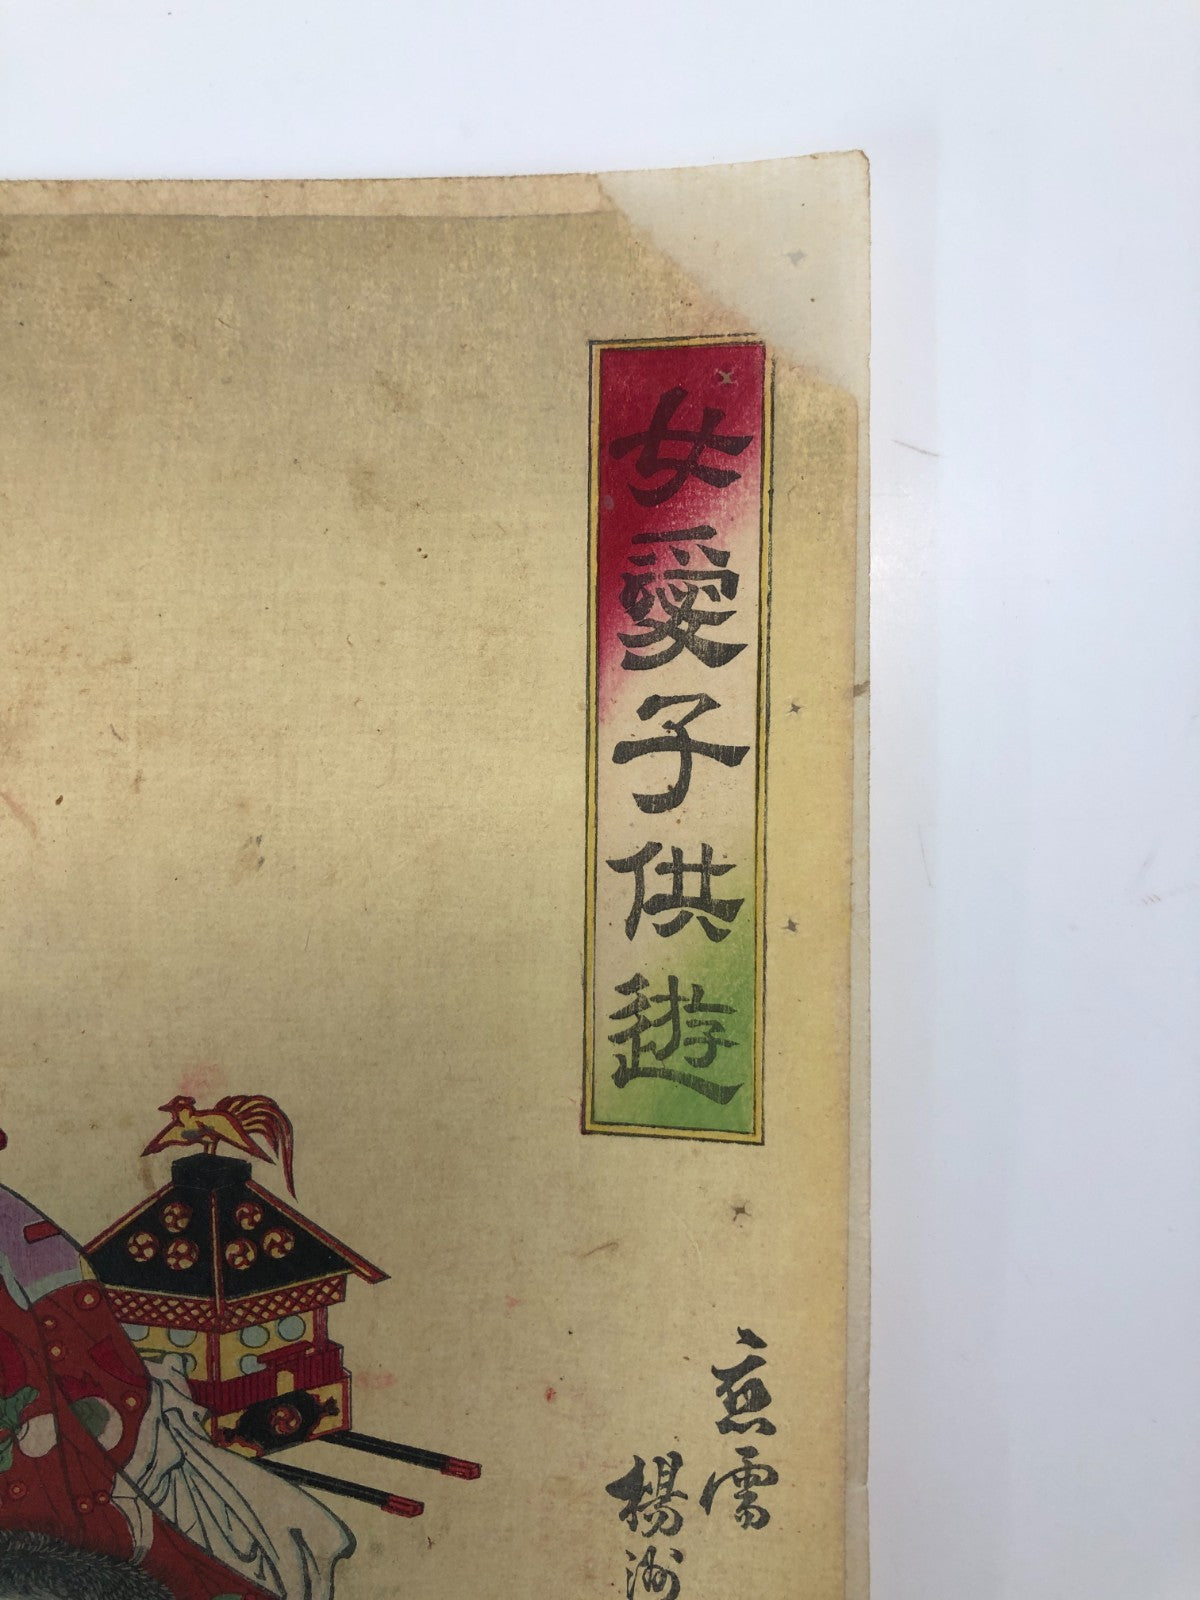 女愛子供遊
應需
楊洲